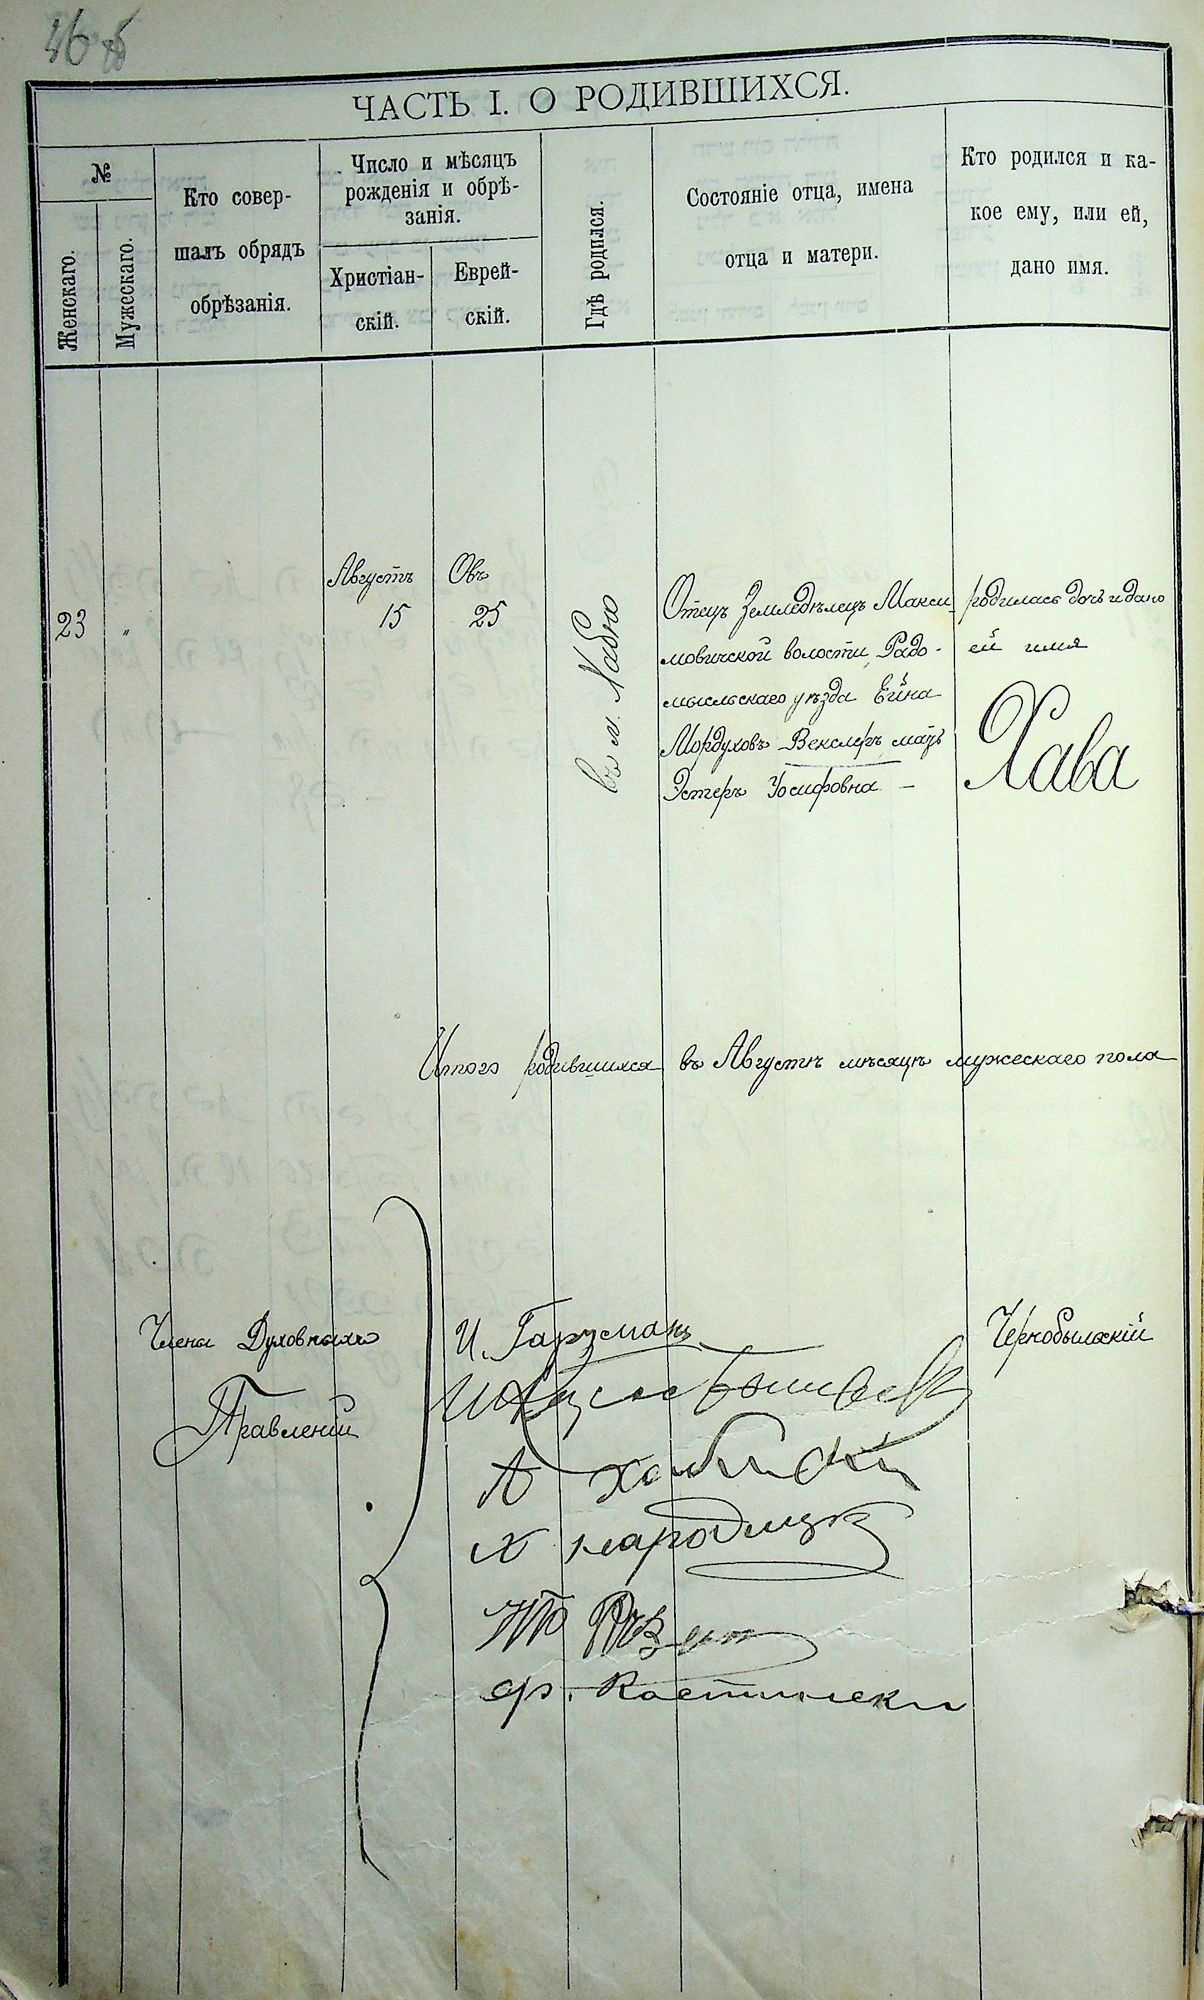 46
ЧАСТЬ I. О РОДИВШИХСЯ.
№
Женскаго.
Мужескаго.
Кто совер-
шалъ обрядъ
обрѣзанія.
Число и мѣсяцъ
рожденія и обрѣ-
занія.
Христіан-
скій.
Еврей-
скій.
Гдѣ родился.
Состояніе отца, имена
отца и матери.
Кто родился и ка-
кое ему, или ей,
дано имя.
23
"
Августъ
15
Овъ
25
въ м. Хабно
Отецъ Земледѣлецъ Макси-
мовичской волости Радо-
мысльскаго уѣзда Ейна
Мордуховъ Векслеръ мать
Эстеръ Іосифовна —
родилась дочь и дано
ей имя
Хава
Итого родившихся въ Августѣ мѣсяцѣ мужескаго пола
Члены Духовныхъ
Правленій
И. Гарцманъ
Чернобыльскій
А Хабнскій
Х Народицк